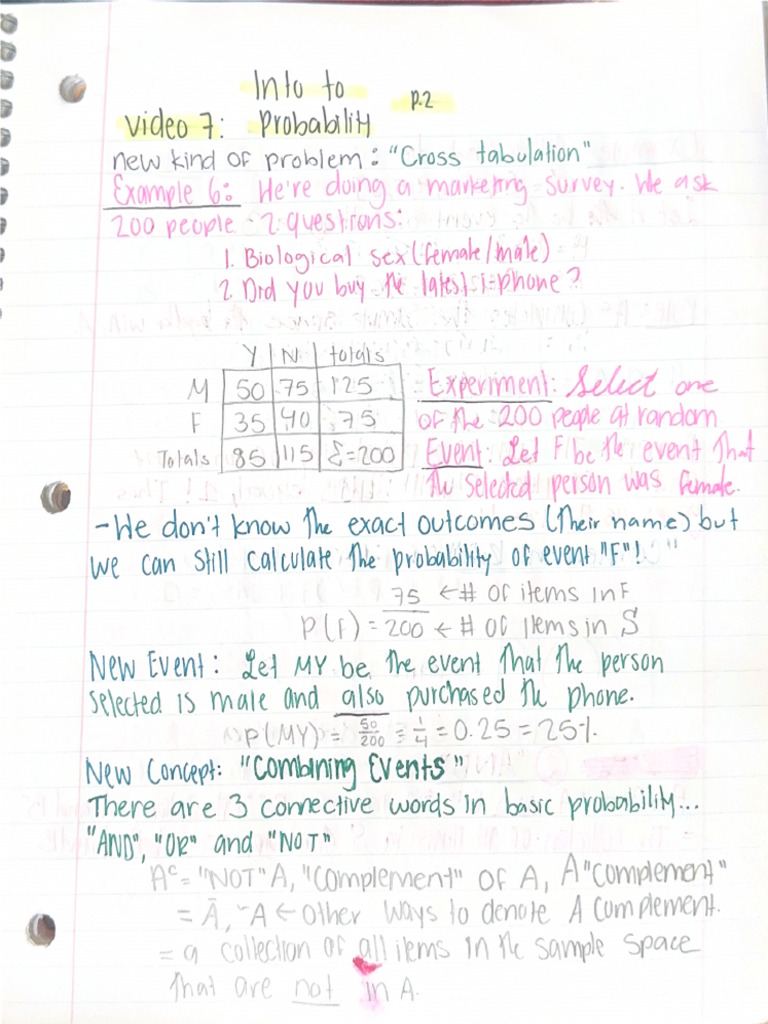 Into to p.2
Video 7: Probability
new kind of problem: "Cross tabulation"
Example 6: We're doing a marketing survey. We ask
200 people 2 questions:
1. Biological sex (female/male)
2. Did you buy the latest i-phone?
Y N totals
M 50 75 125
F 35 40 75
Totals 85 115 Σ=200
Experiment: Select one
of the 200 people at random
Event: Let F be the event that
the selected person was female.
- We don't know the exact outcomes (their name) but
we can still calculate the probability of event "F"!
75 ← # of items in F
P(F) = 200 ← # of items in S
New Event: Let MY be the event that the person
selected is male and also purchased the phone.
P(MY) = 50/200 = 1/4 = 0.25 = 25%
New Concept: "Combining Events"
There are 3 connective words in basic probability...
"AND", "OR" and "NOT"
Aᶜ = "NOT" A, "Complement" of A, A "Complement"
= Ā, ~A ← other ways to denote A complement.
= a collection of all items in the sample space
that are not in A.